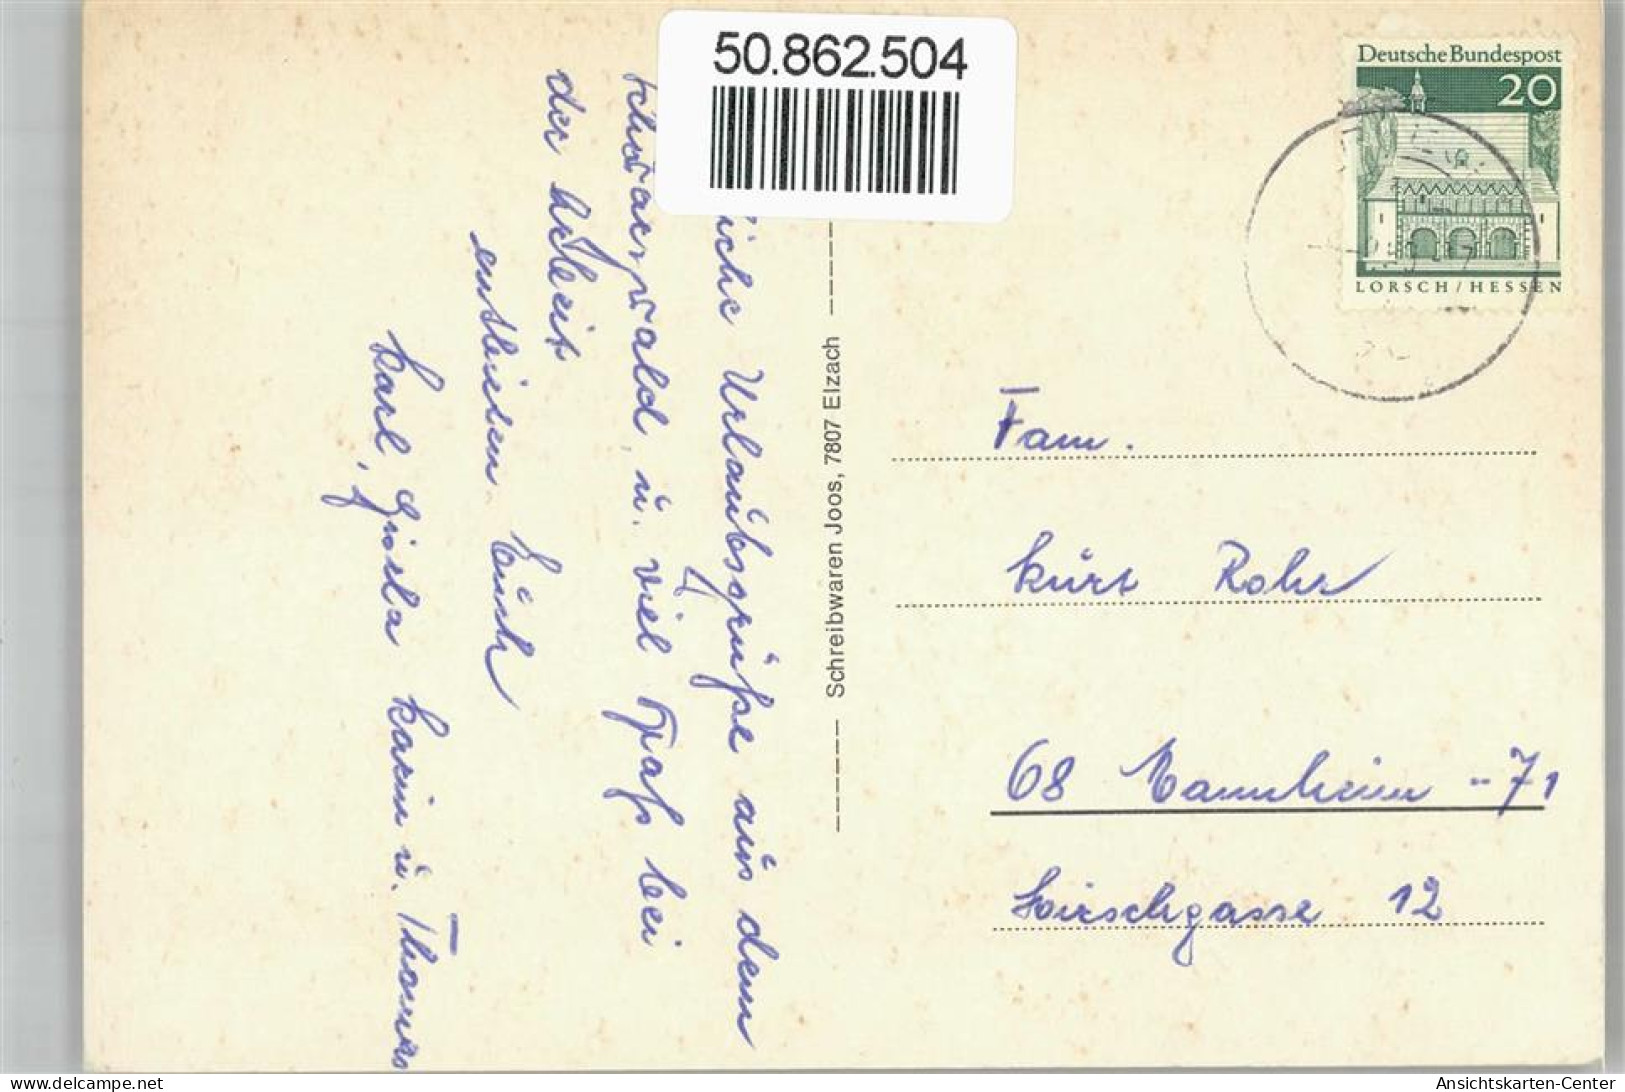 50.862.504
Deutsche Bundespost
20
LORSCH / HESSEN
liche Urlaubsgrüße aus dem
Schwarzwald u. viel Spaß bei
der Arbeit
entbieten Euch
Karl, Gisela Karin u. Thomas
Schreibwaren Joos, 7807 Elzach
Fam.
Kurt Rohr
68 Mannheim - 71
Hirschgasse 12
www.oldthing.de
Ansichtskarten-Center